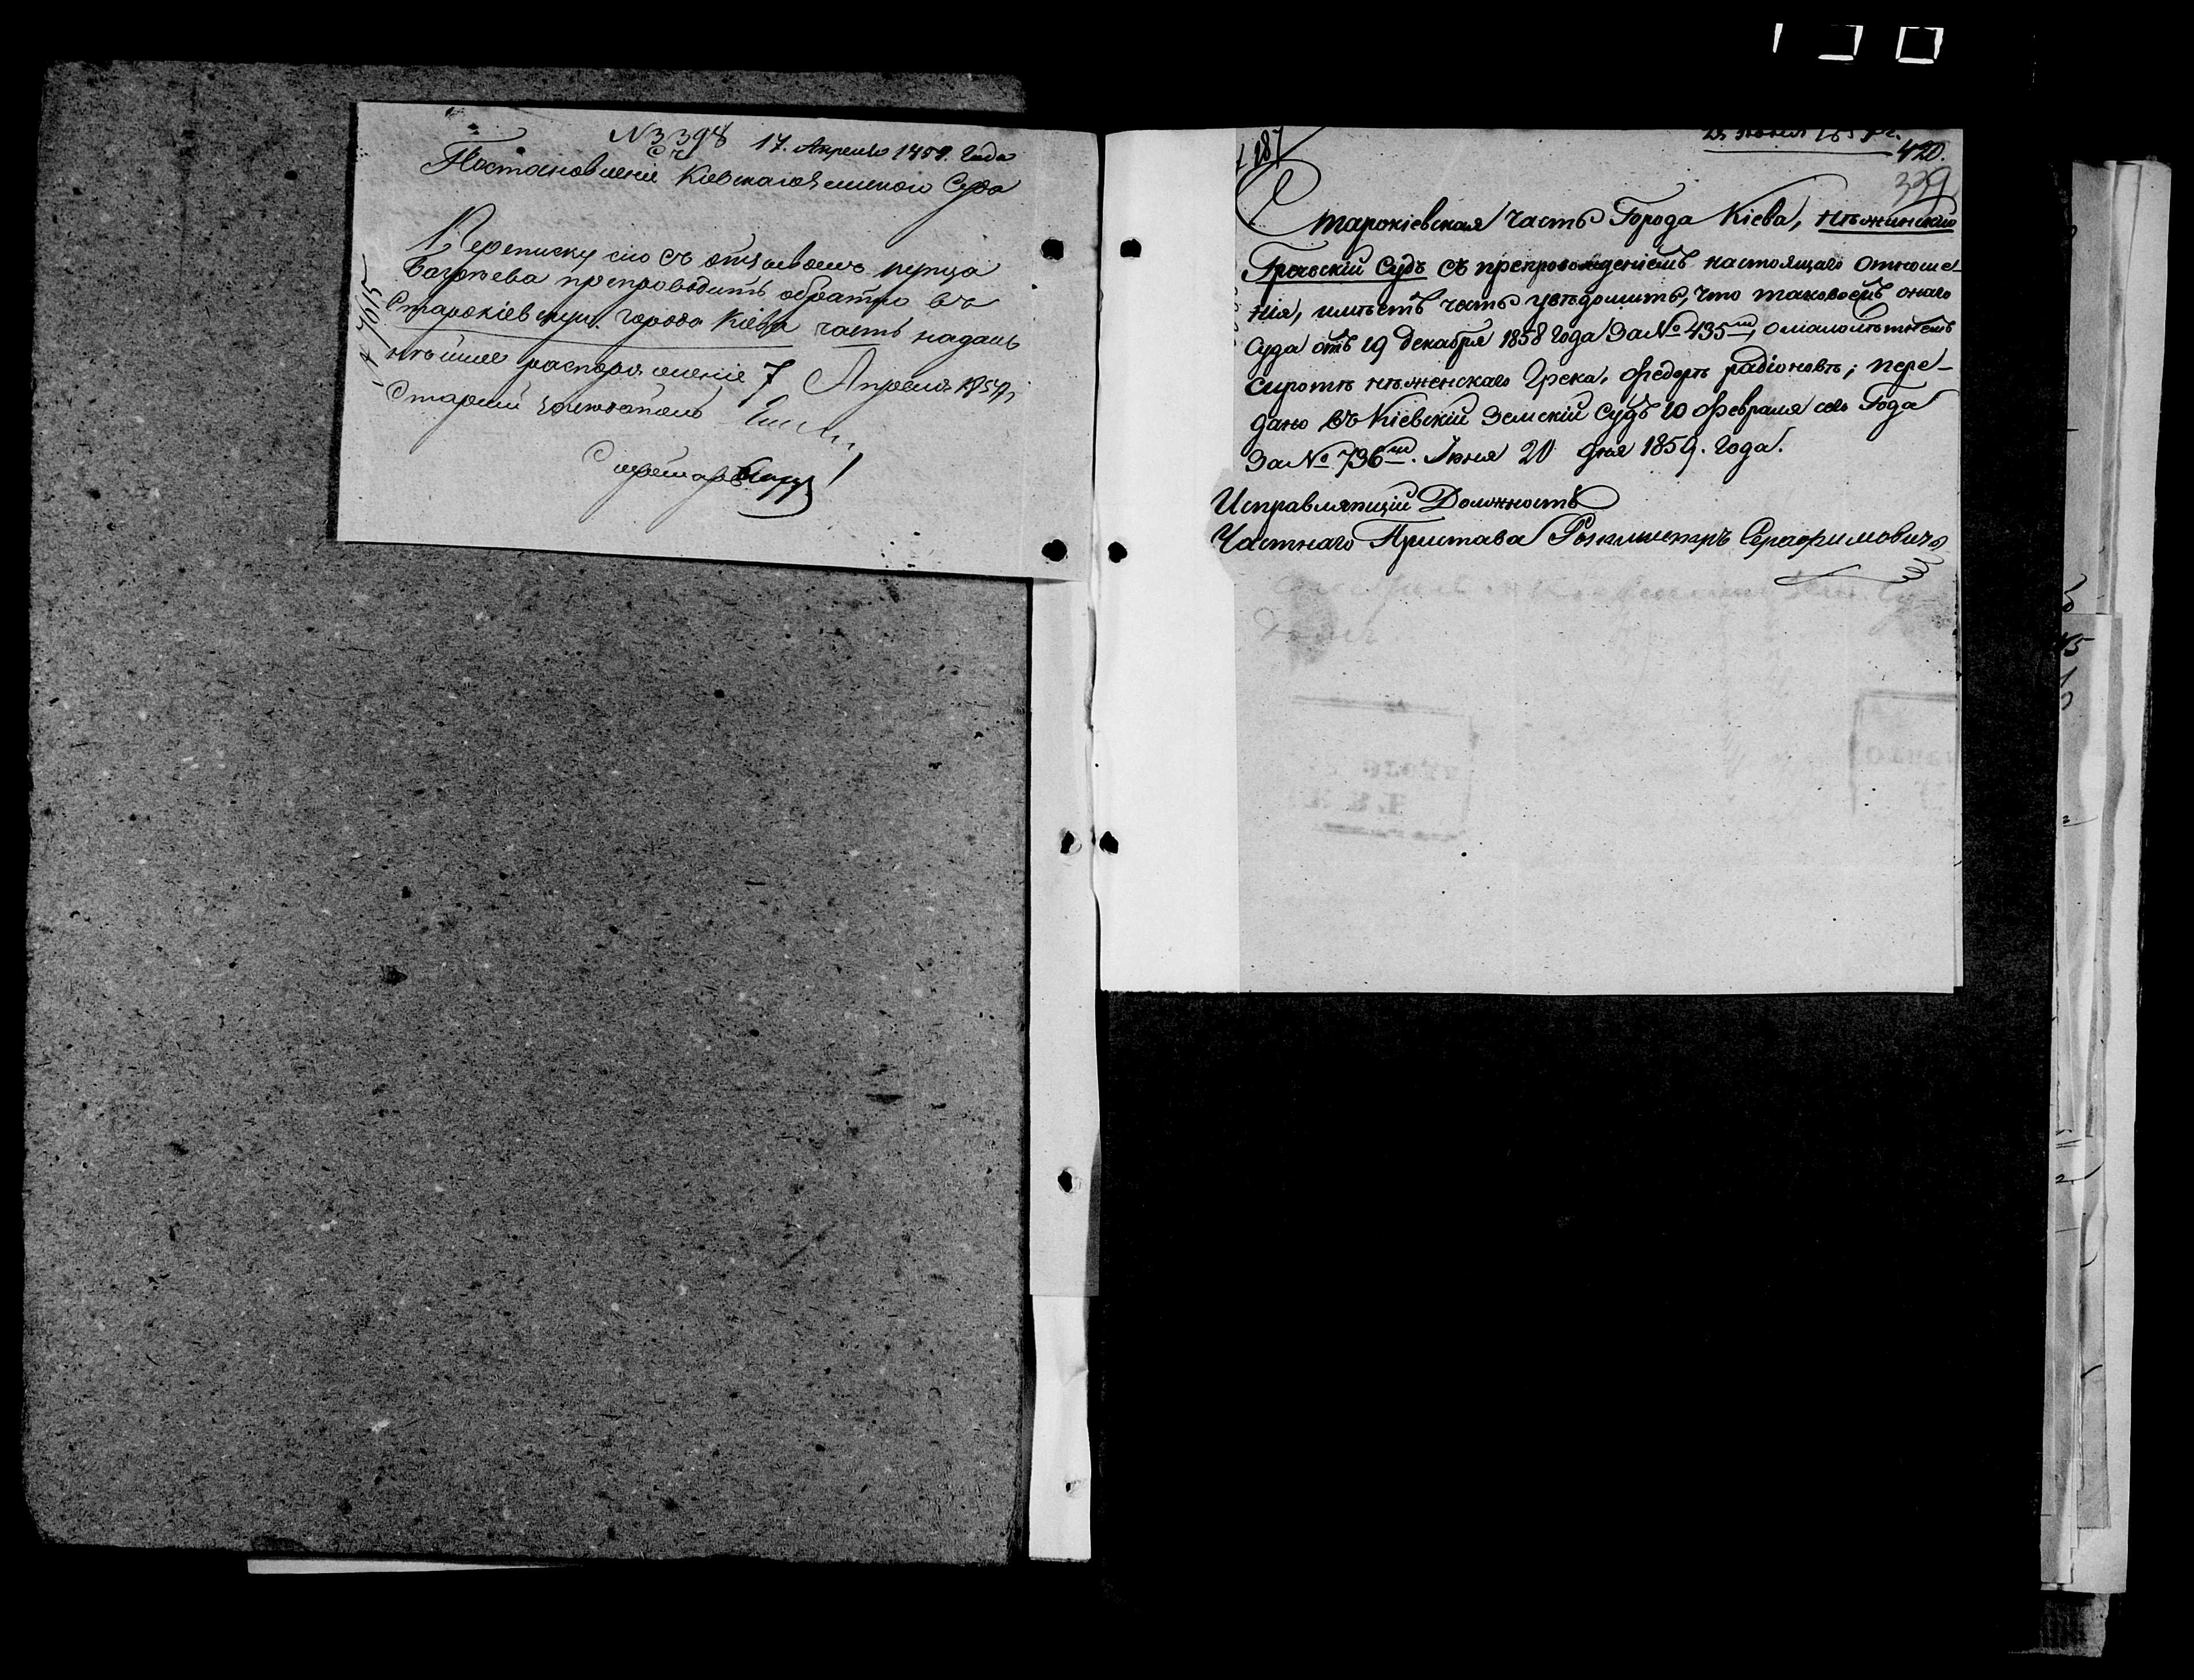 № 3398 17. Апреля 1859. Года
Постановленіе Кіевскаго Земскаго Суда
Переписку сію съ отзывомъ купца
препроводить обратно въ
Старокіевскую города Кіева часть на даль
нѣйшее распоряженіе 7 Апреля 1859 г.
Старшій
Секретарь
187
23 Іюня 1859 г.
420.
339
Старокіевская Часть Города Кіева, Нѣжинскій
Греческій Судъ съ препровожденіемъ настоящаго отноше-
нія, имѣетъ честь увѣдомить, что таковоежъ онаго
Суда отъ 19 декабря 1858 Года За № 435ᵐ, о малолѣтнемъ
сиротѣ нѣженскаго Грека, Ѳедорѣ Радіоновѣ; пере-
дано въ Кіевскій Земскій Судъ 10 Февраля сего Года
За № 736ᵐ. Іюня 20 дня 1859. Года.
Исправляющій Должность
Частнаго Пристава Ротмистръ Серафимовичъ